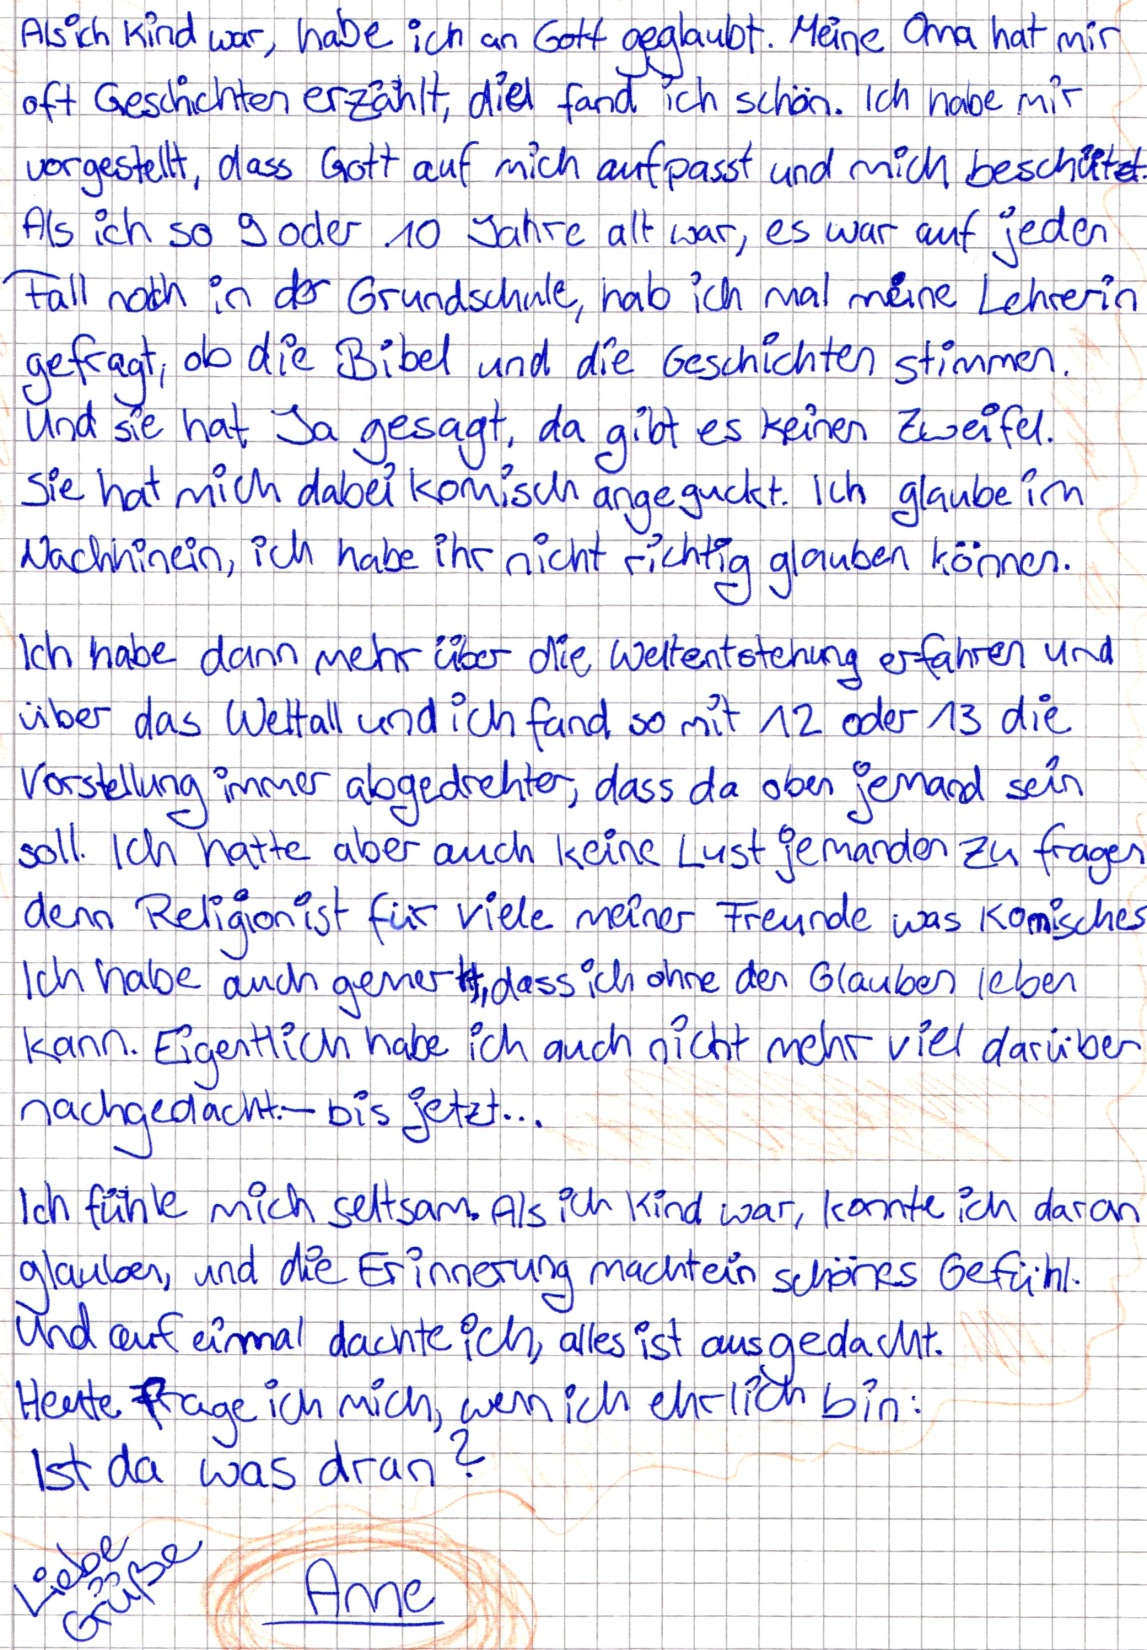 Als ich Kind war, habe ich an Gott geglaubt. Meine Oma hat mir
oft Geschichten erzählt, die fand ich schön. Ich habe mir
vorgestellt, dass Gott auf mich aufpasst und mich beschützt.
Als ich so 9 oder 10 Jahre alt war, es war auf jeden
Fall noch in der Grundschule, hab ich mal meine Lehrerin
gefragt, ob die Bibel und die Geschichten stimmen.
Und sie hat Ja gesagt, da gibt es keinen Zweifel.
Sie hat mich dabei komisch angeguckt. Ich glaube im
Nachhinein, ich habe ihr nicht richtig glauben können.
Ich habe dann mehr über die Weltentstehung erfahren und
über das Weltall und ich fand so mit 12 oder 13 die
Vorstellung immer abgedrehter, dass da oben jemand sein
soll. Ich hatte aber auch keine Lust jemanden zu fragen
denn Religion ist für viele meiner Freunde was Komisches
Ich habe auch gemerkt, dass ich ohne den Glauben leben
kann. Eigentlich habe ich auch nicht mehr viel darüber
nachgedacht. – bis jetzt...
Ich fühle mich seltsam. Als ich Kind war, konnte ich daran
glauben, und die Erinnerung macht ein schönes Gefühl.
Und auf einmal dachte ich, alles ist ausgedacht.
Heute frage ich mich, wenn ich ehrlich bin:
Ist da was dran?
Liebe
Grüße
Anne